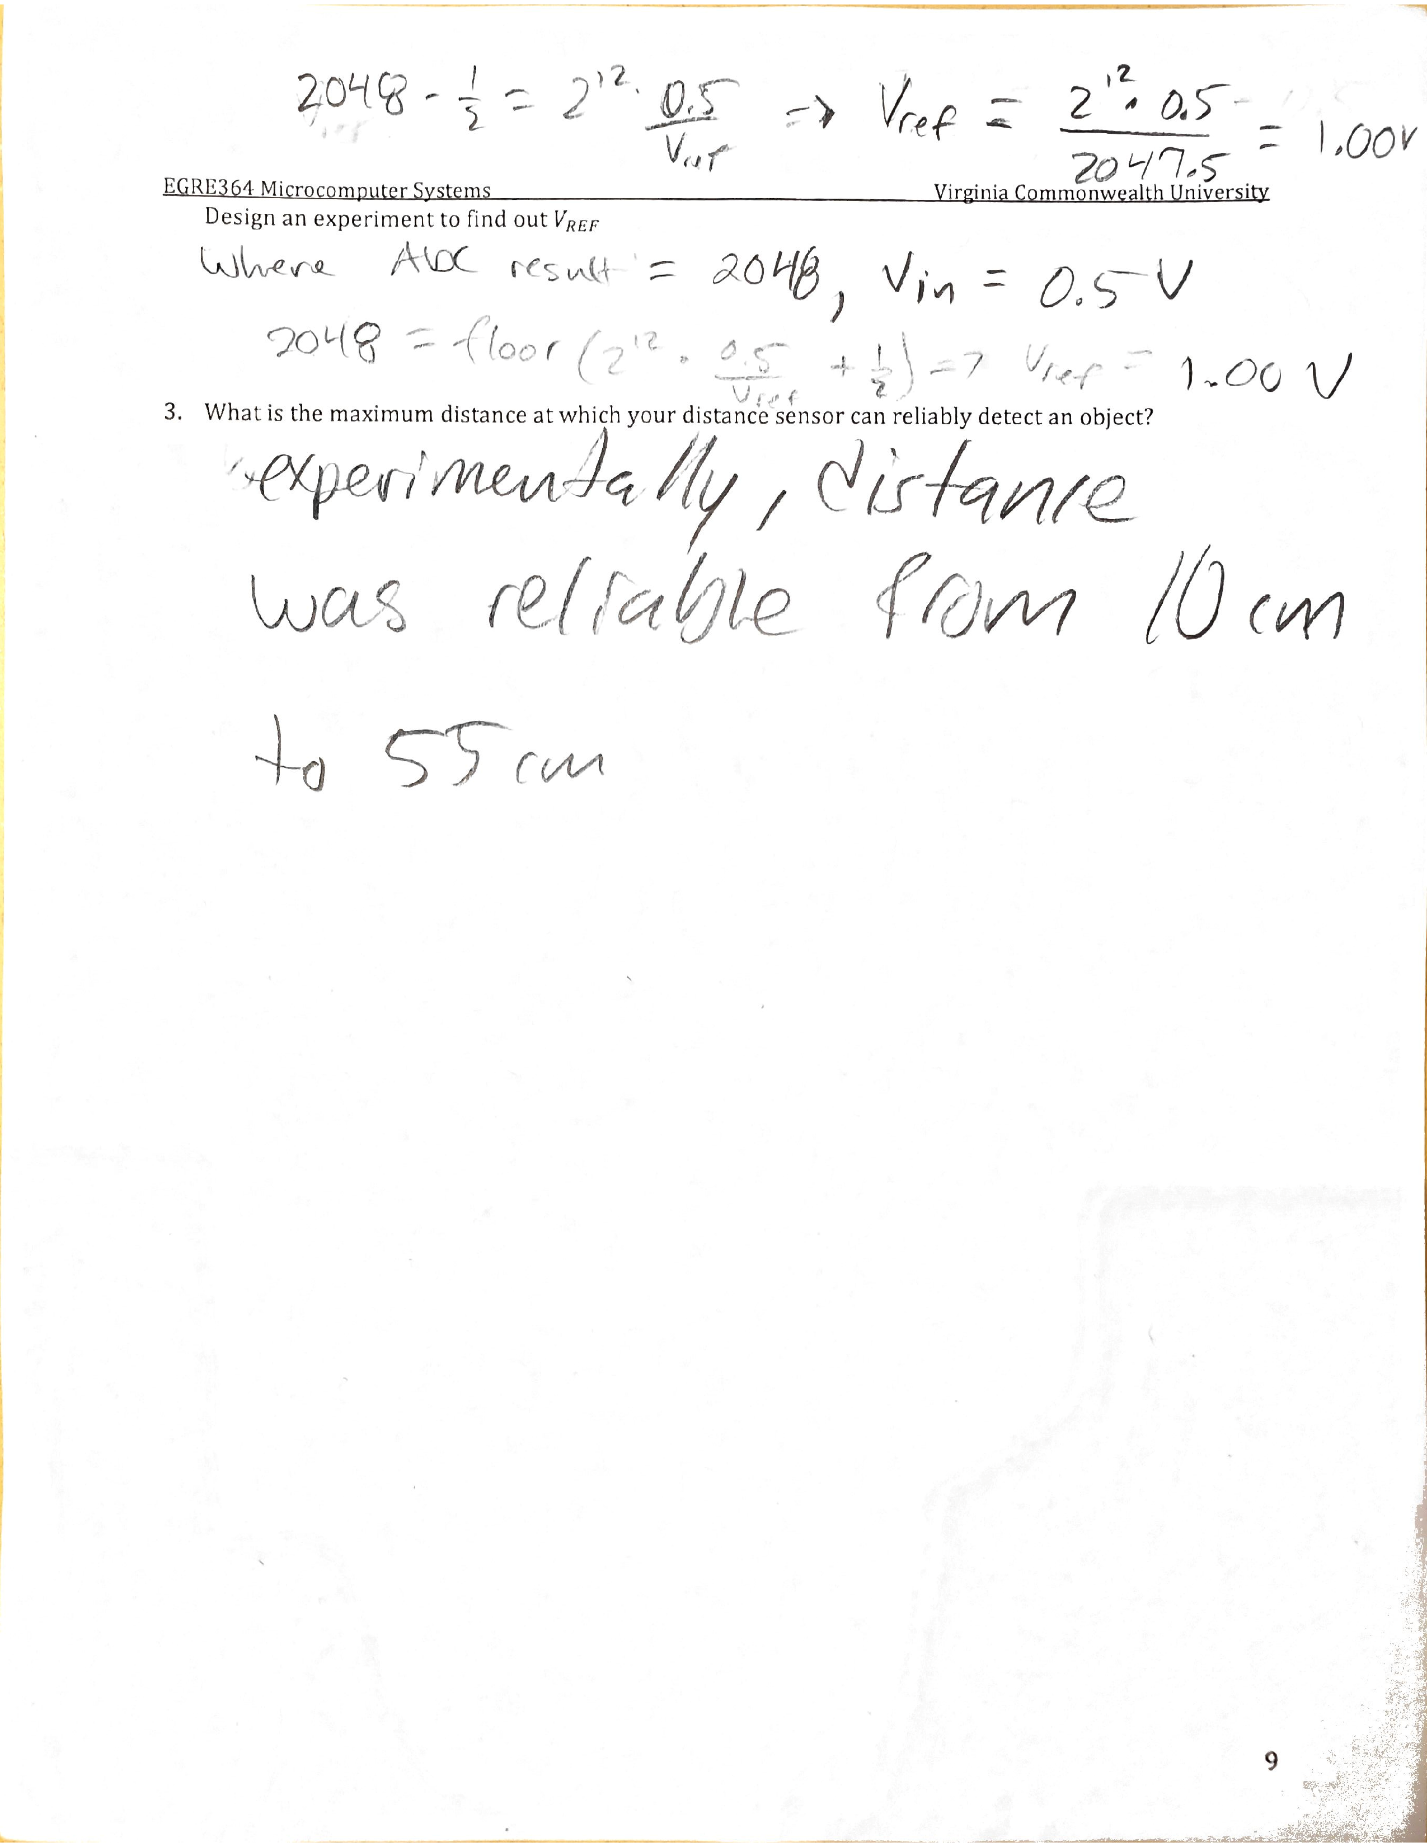 2048 - 1/2 = 2^12 · 0.5/Vref => Vref = 2^12 · 0.5 / 2047.5 = 1.00V
EGRE364 Microcomputer Systems Virginia Commonwealth University
Design an experiment to find out VREF
Where ADC result = 2048, Vin = 0.5 V
2048 = floor (2^12 · 0.5/Vref + 1/2) => Vref = 1.00 V
3. What is the maximum distance at which your distance sensor can reliably detect an object?
experimentally, distance
was reliable from 10 cm
to 55 cm
9